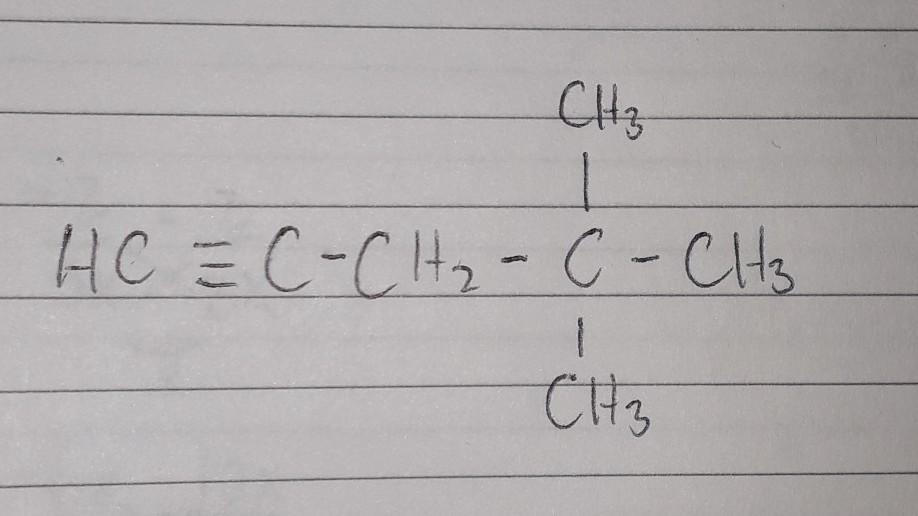 CH₃
|
HC ≡ C - CH₂ - C - CH₃
|
CH₃